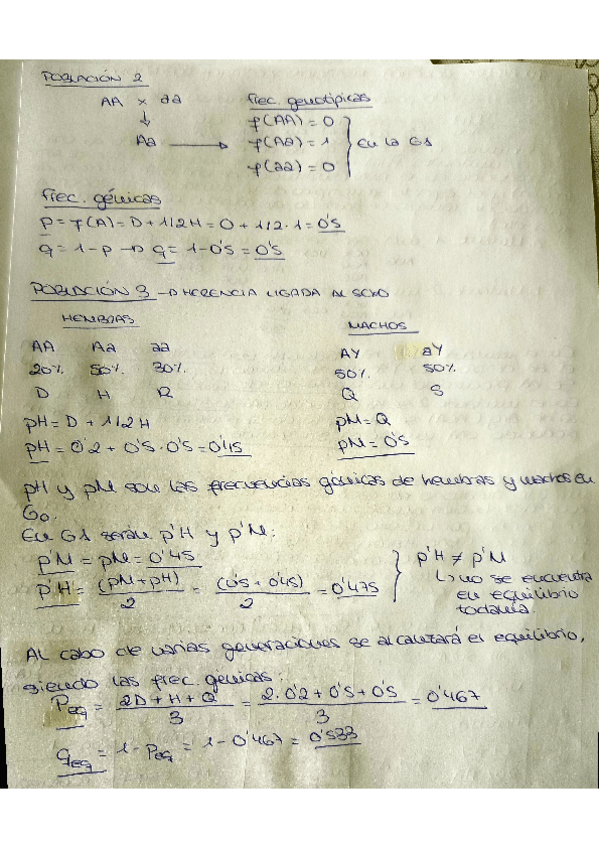 POBLACIÓN 2
AA x aa
Frec. genotípicas
f(AA) = 0
Aa → f(Aa) = 1 } en la G1
f(aa) = 0
Frec. génicas
p = f(A) = D + 1/2H = 0 + 1/2 · 1 = 0'5
q = 1 - p → q = 1 - 0'5 = 0'5
POBLACIÓN 3 → HERENCIA LIGADA AL SEXO
HEMBRAS MACHOS
AA Aa aa AY aY
20% 50% 30% 50% 50%
D H R Q S
pH = D + 1/2H pM = Q
pH = 0'2 + 0'5 · 0'5 = 0'45 pM = 0'5
pH y pM son las frecuencias génicas de hembras y machos en
G0.
En G1 serán p'H y p'M:
p'M = pM = 0'45 } p'H ≠ p'M
p'H = (pM + pH) / 2 = (0'5 + 0'45) / 2 = 0'475
↳ no se encuentra
en equilibrio
todavía.
Al cabo de varias generaciones se alcanzará el equilibrio,
siendo las frec. génicas:
Peq = 2D + H + Q / 3 = 2 · 0'2 + 0'5 + 0'5 / 3 = 0'467
qeq = 1 - Peq = 1 - 0'467 = 0'533